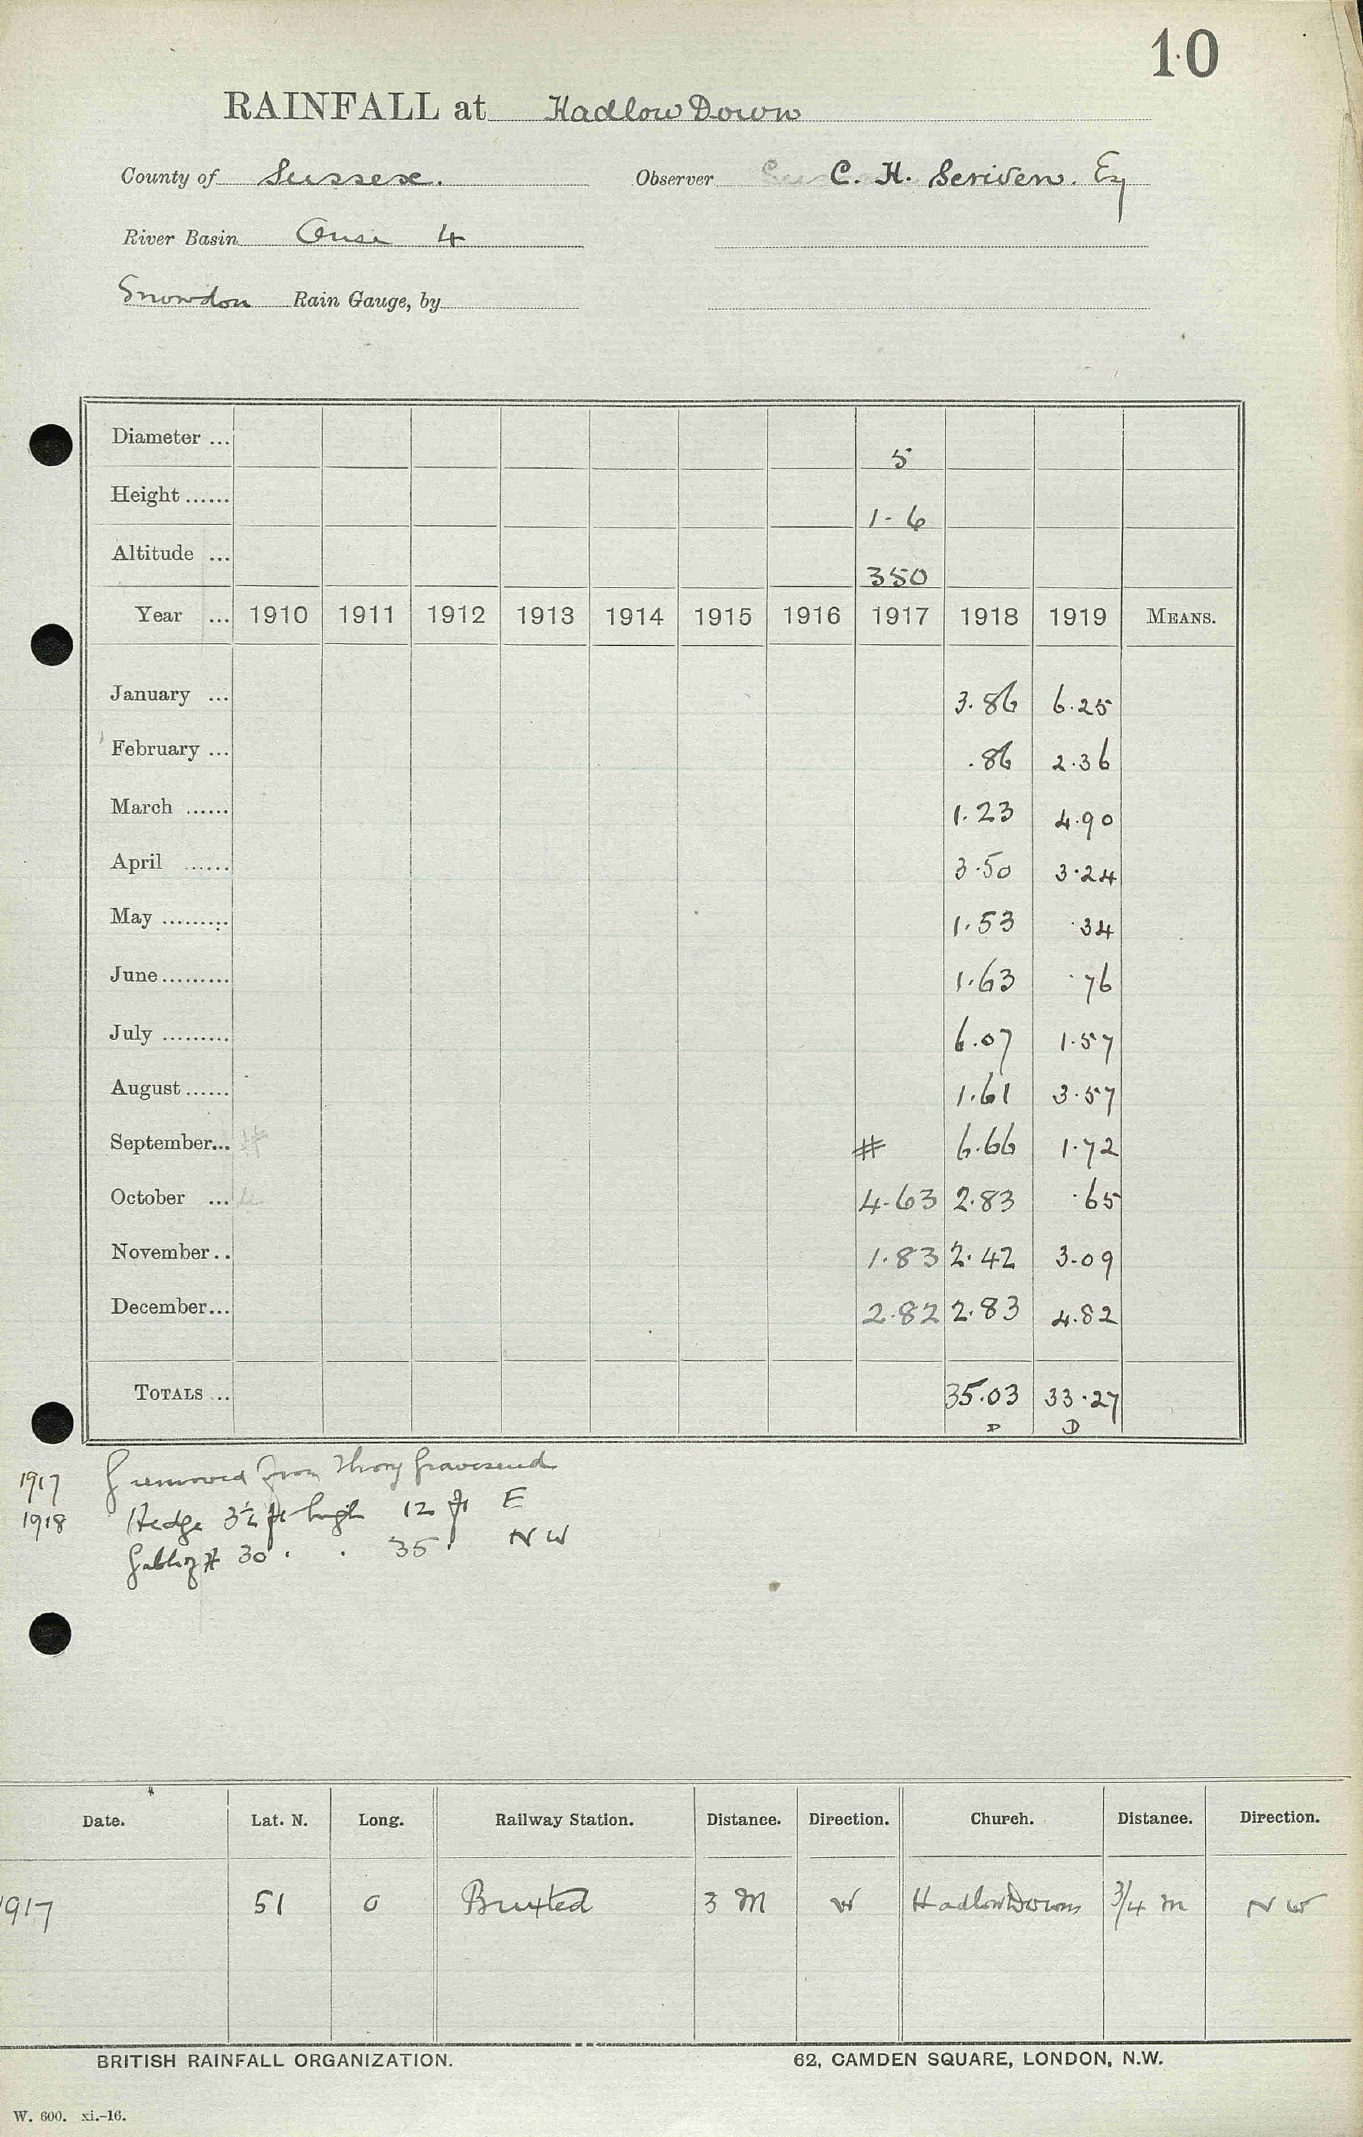 10
RAINFALL at Hadlow Down
County of Sussex. Observer C. H. Scriven. Esq
River Basin Ouse 4
Snowdon Rain Gauge, by
Diameter ... 5
Height ...... 1-6
Altitude ... 350
Year ... 1910 1911 1912 1913 1914 1915 1916 1917 1918 1919 MEANS.
January ... 3.86 6.25
February ... .86 2.36
March ...... 1.23 4.90
April ...... 3.50 3.24
May ......... 1.53 .34
June ......... 1.63 .76
July ......... 6.07 1.57
August ...... 1.61 3.57
September... # 6.66 1.72
October ... 4.63 2.83 .65
November .. 1.83 2.42 3.09
December... 2.82 2.83 4.82
TOTALS ... 35.03 33.27
D D
1917 G removed from Gravesend
1918 Hedge 3½ ft high 12 ft E
30 . . 35 . NW
Date. Lat. N. Long. Railway Station. Distance. Direction. Church. Distance. Direction.
1917 51 0 Buxted 3 M W Hadlow Down 3/4 m NW
BRITISH RAINFALL ORGANIZATION. 62, CAMDEN SQUARE, LONDON, N.W.
W. 600. xi.-16.